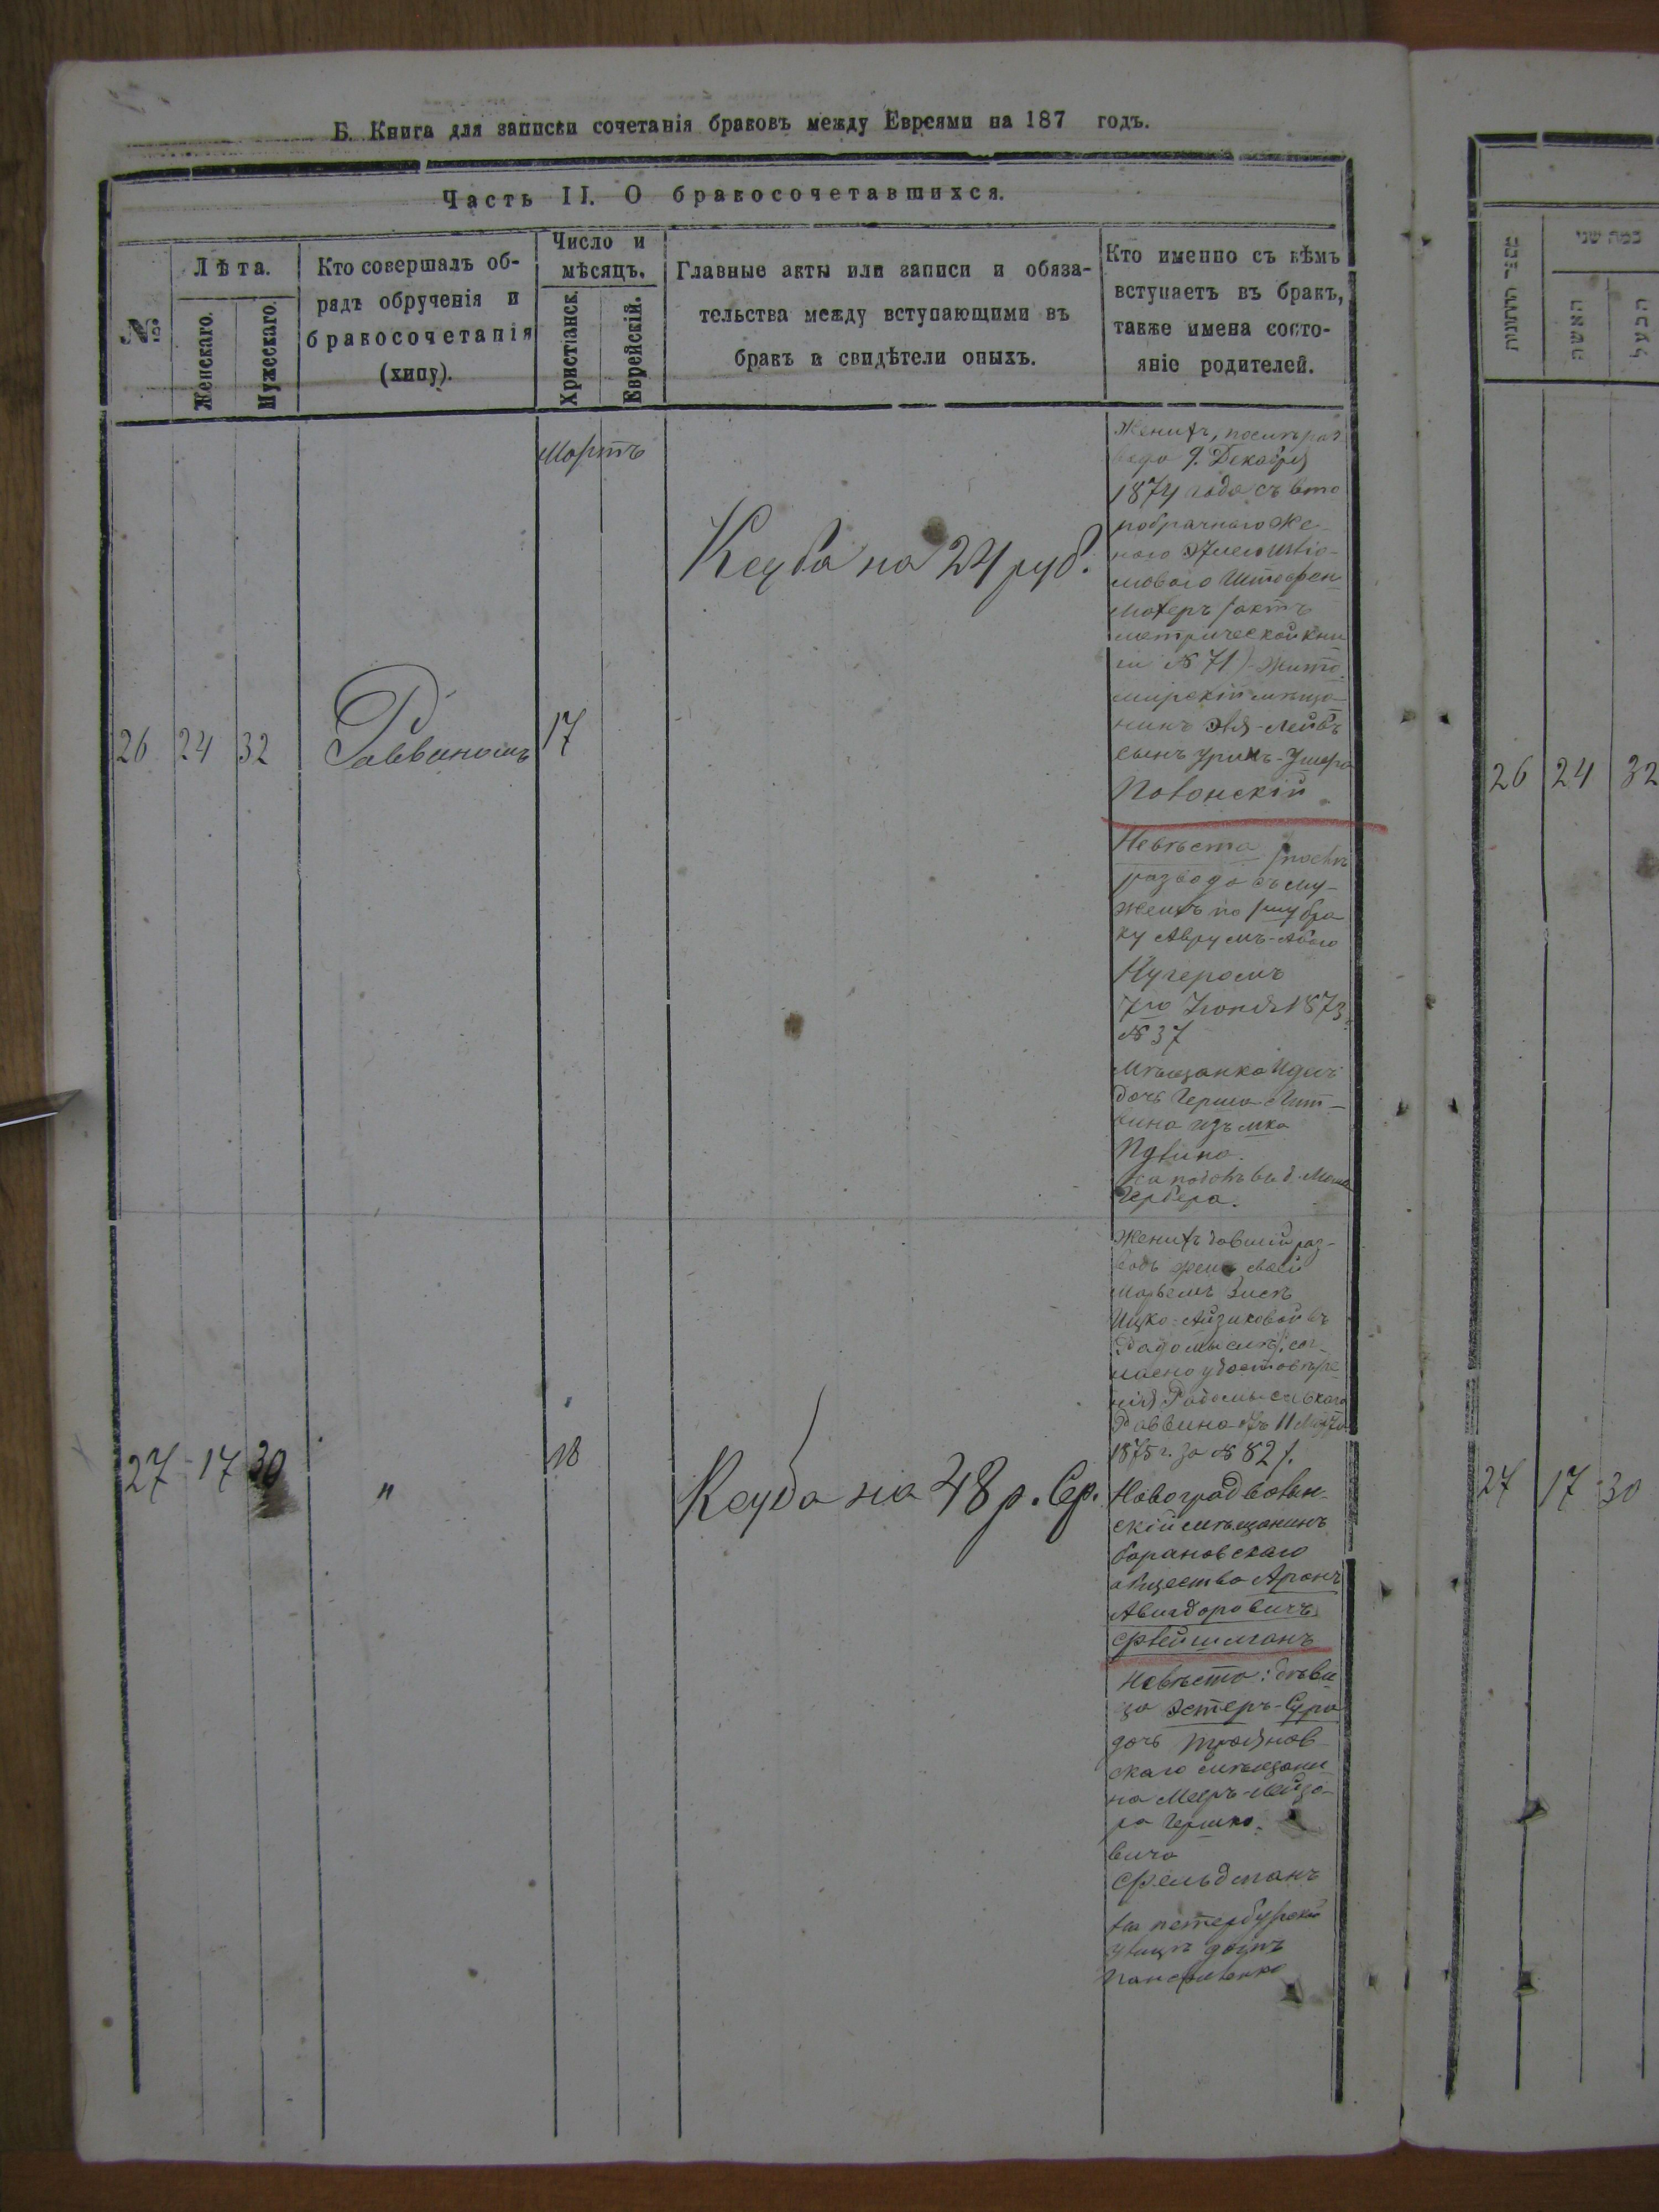 Б. Книга для записки сочетанія браковъ между Евреями на 187 годъ.
Часть II. О бракосочетавшихся.
№
Лѣта.
Женскаго.
Мужескаго.
Кто совершалъ об-
рядъ обрученія и
бракосочетанія
(хипу).
Число и
мѣсяцъ.
Христіанск.
Еврейскій.
Главные акты или записи и обяза-
тельства между вступающими въ
бракъ и свидѣтели оныхъ.
Кто именно съ кѣмъ
вступаетъ въ бракъ,
также имена состо-
яніе родителей.
Мартъ
26 24 32 Раввиномъ 17
Ксуба на 24 руб.
Женихъ, послѣ раз
вода 9. Декабря
1874 года съ вто
робрачною же-
ною
метрической кни
ги № 71) - Жито
мирскій мѣща-
нинъ Эля-Лейбъ
сынъ Урихъ-Ушера
Полонскій
Невѣста /послѣ
развода съ му-
жемъ по 1му бра
ку Аврумъ-Абою
Кугеромъ
7го Іюня 1873г
№ 37
Мѣщанка Идесъ
дочь Герша Лит-
вина изъ мка
Гербера.
27 17 30 " 18
Ксуба на 48 р. Сер.
Женихъ давшій раз-
водъ женѣ своей
Марьемъ Зислѣ
Ицко-Айзиковой въ
Радомыслѣ /сог-
ласно удостовѣре
нія Радомысльскаго
Раввина отъ 11 Марта
1875 г. за № 82/.
Новоградволын-
скій мѣщанинъ
барановскаго
общества Аронъ
Авигдоровичъ
Флейшманъ
Невѣста: дѣви
ца Эстеръ-Сура
дочь Трояновъ
скаго мѣщани
на Мееръ-Лейзо-
ра Гершко-
вича
Фельдманъ
на петербурской
улицѣ домъ
Панфиленко
מספר החתונות
כמה שני
האשה
הבעל
26 24 32
27 17 30